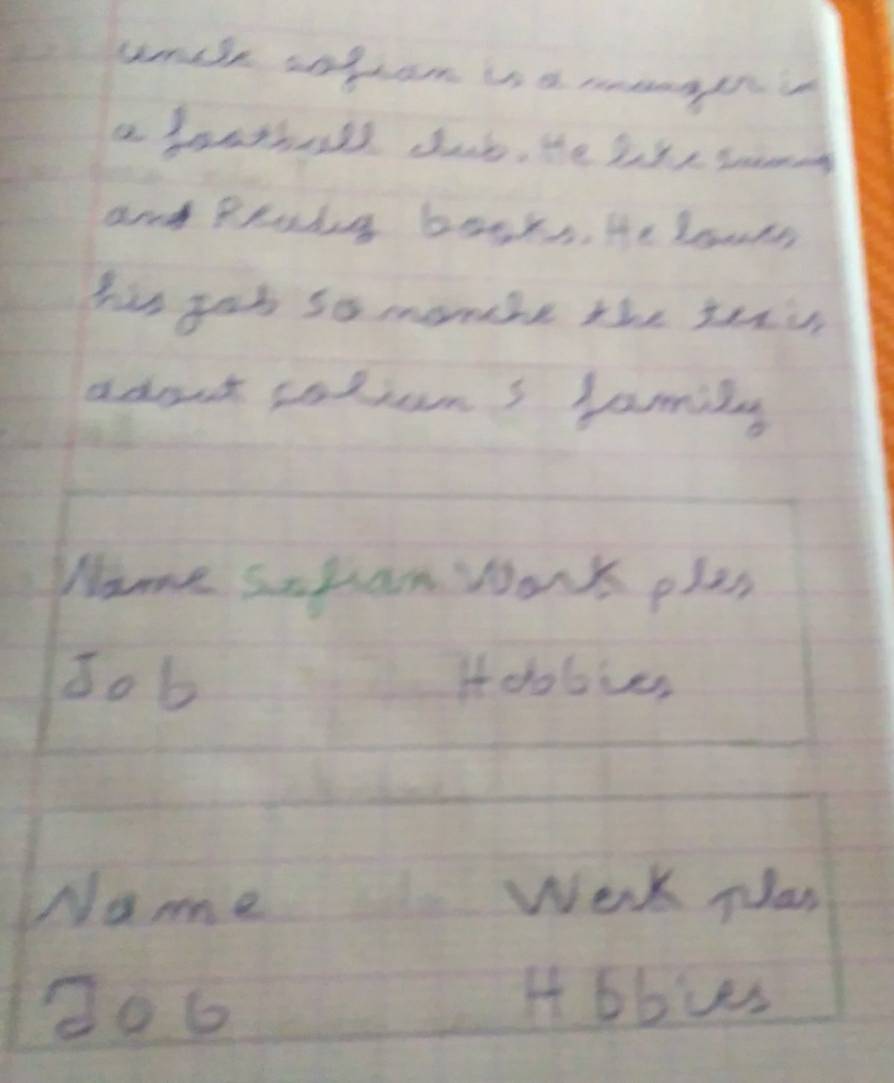 uncle sofian is a manger in
a football club. He like
and Readig books. He loves
his gob so monche the text is
adout sofian s family
Name Sofian Work ples
Job Hobbies
Name Werk plas
Job Hbbies